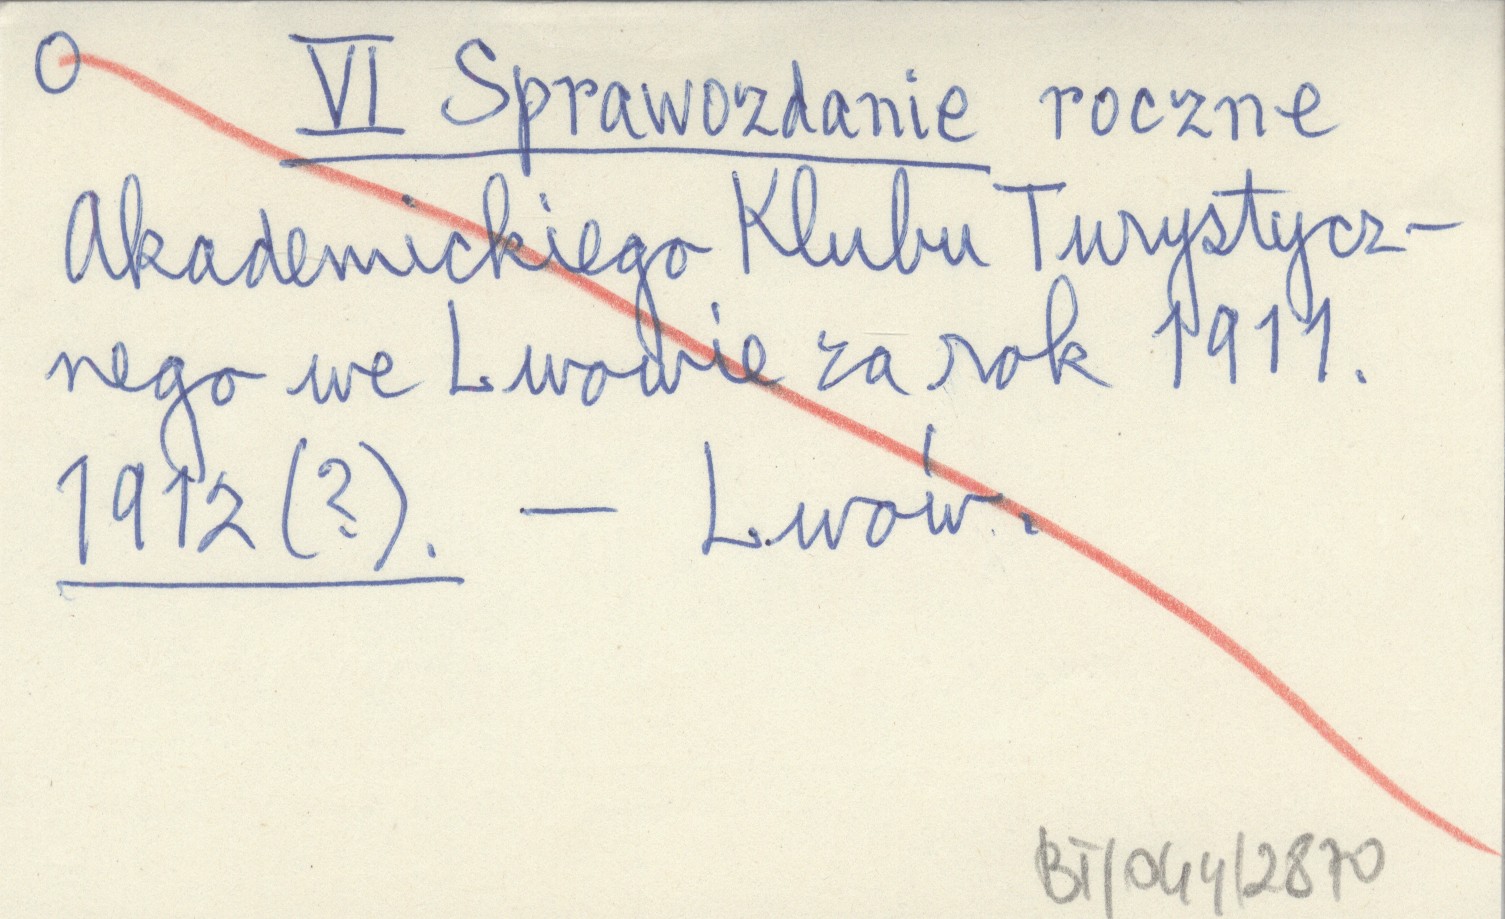 O VI Sprawozdanie roczne
Akademickiego Klubu Turystycz-
nego we Lwowie za rok 1911.
1912 (?). — Lwów.
BT/044/2870